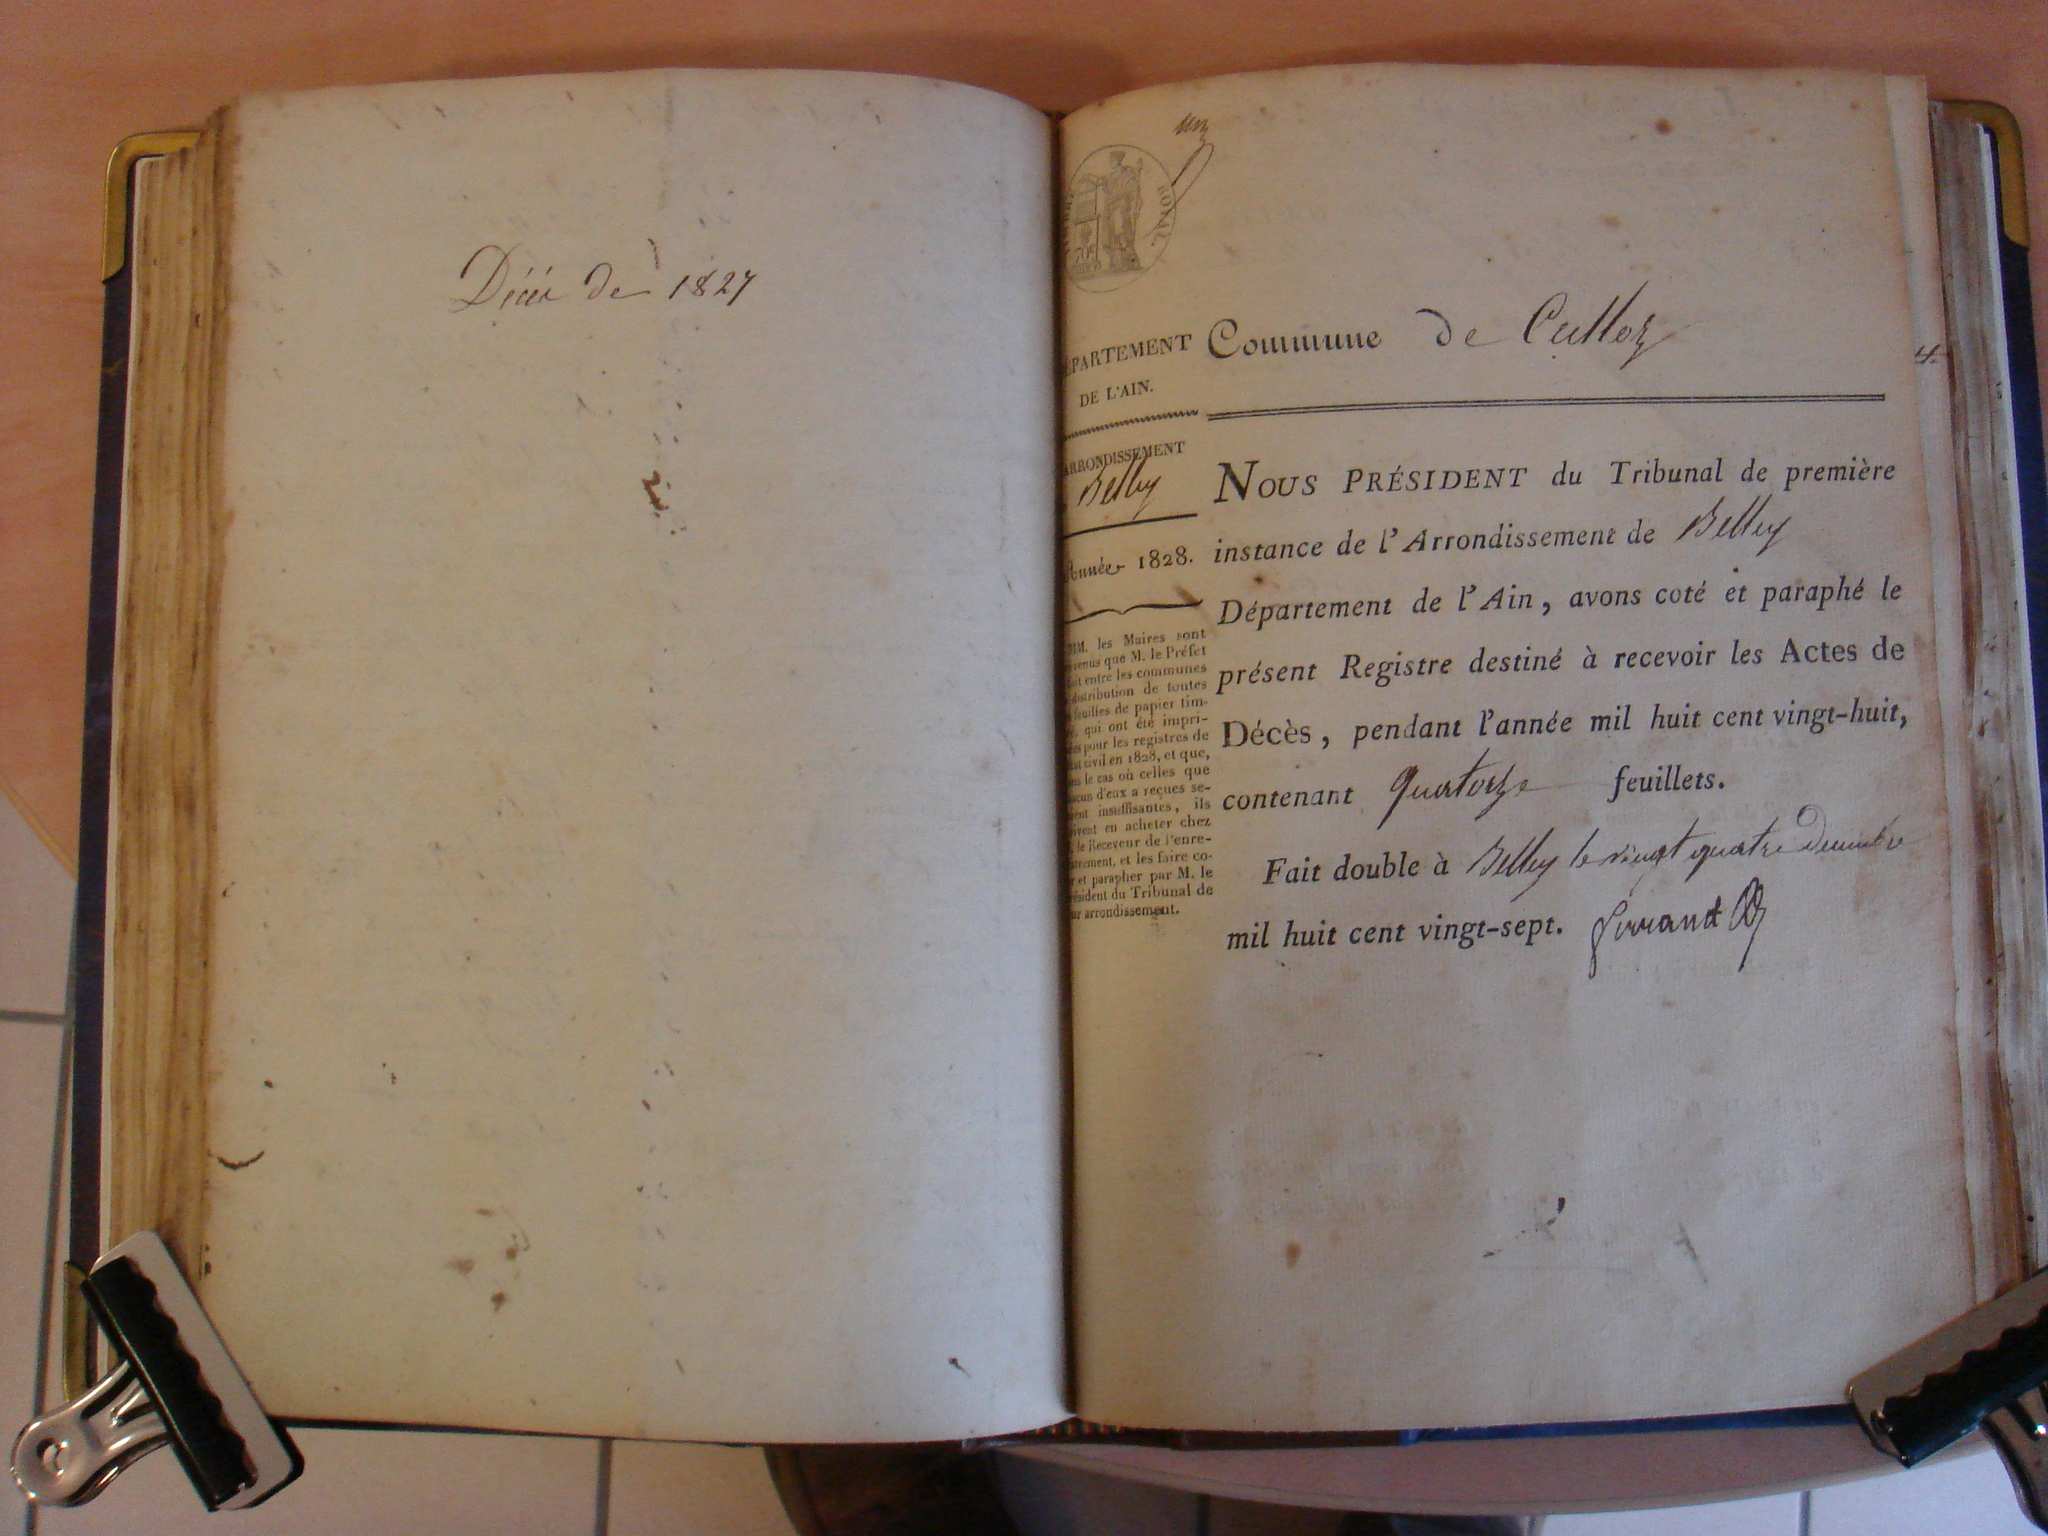 Décès de 1827
un
ROYAL
DÉPARTEMENT
DE L'AIN.
ARRONDISSEMENT
Belley
Année 1828.
MM. les Maires sont
que M. le Préfet
fait entre les communes
distribution de toutes
feuilles de papier tim-
qui ont été impri-
pour les registres de
civil en 1828, et que,
le cas où celles que
d'eux a reçues se-
insuffisantes, ils
en acheter chez
le Receveur de l'enre-
et les faire co-
et parapher par M. le
du Tribunal de
arrondissement.
Commune de Culloz
4
NOUS PRÉSIDENT du Tribunal de première
instance de l'Arrondissement de Belley
Département de l'Ain, avons coté et paraphé le
présent Registre destiné à recevoir les Actes de
Décès, pendant l'année mil huit cent vingt-huit,
contenant quatorze feuillets.
Fait double à Belley le vingt quatre decembre
mil huit cent vingt-sept.